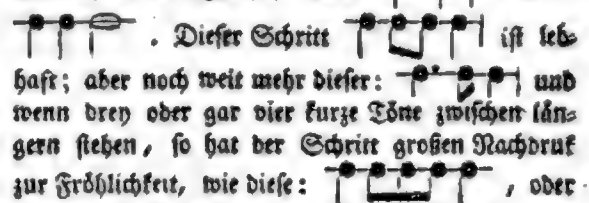 . Dieſer Schritt iſt leb⸗
haft; aber noch weit mehr dieſer: und
wenn drey oder gar vier kurze Töne zwiſchen län⸗
gern ſtehen, ſo hat der Schritt großen Nachdruk
zur Fröhlichkeit, wie dieſe: , oder